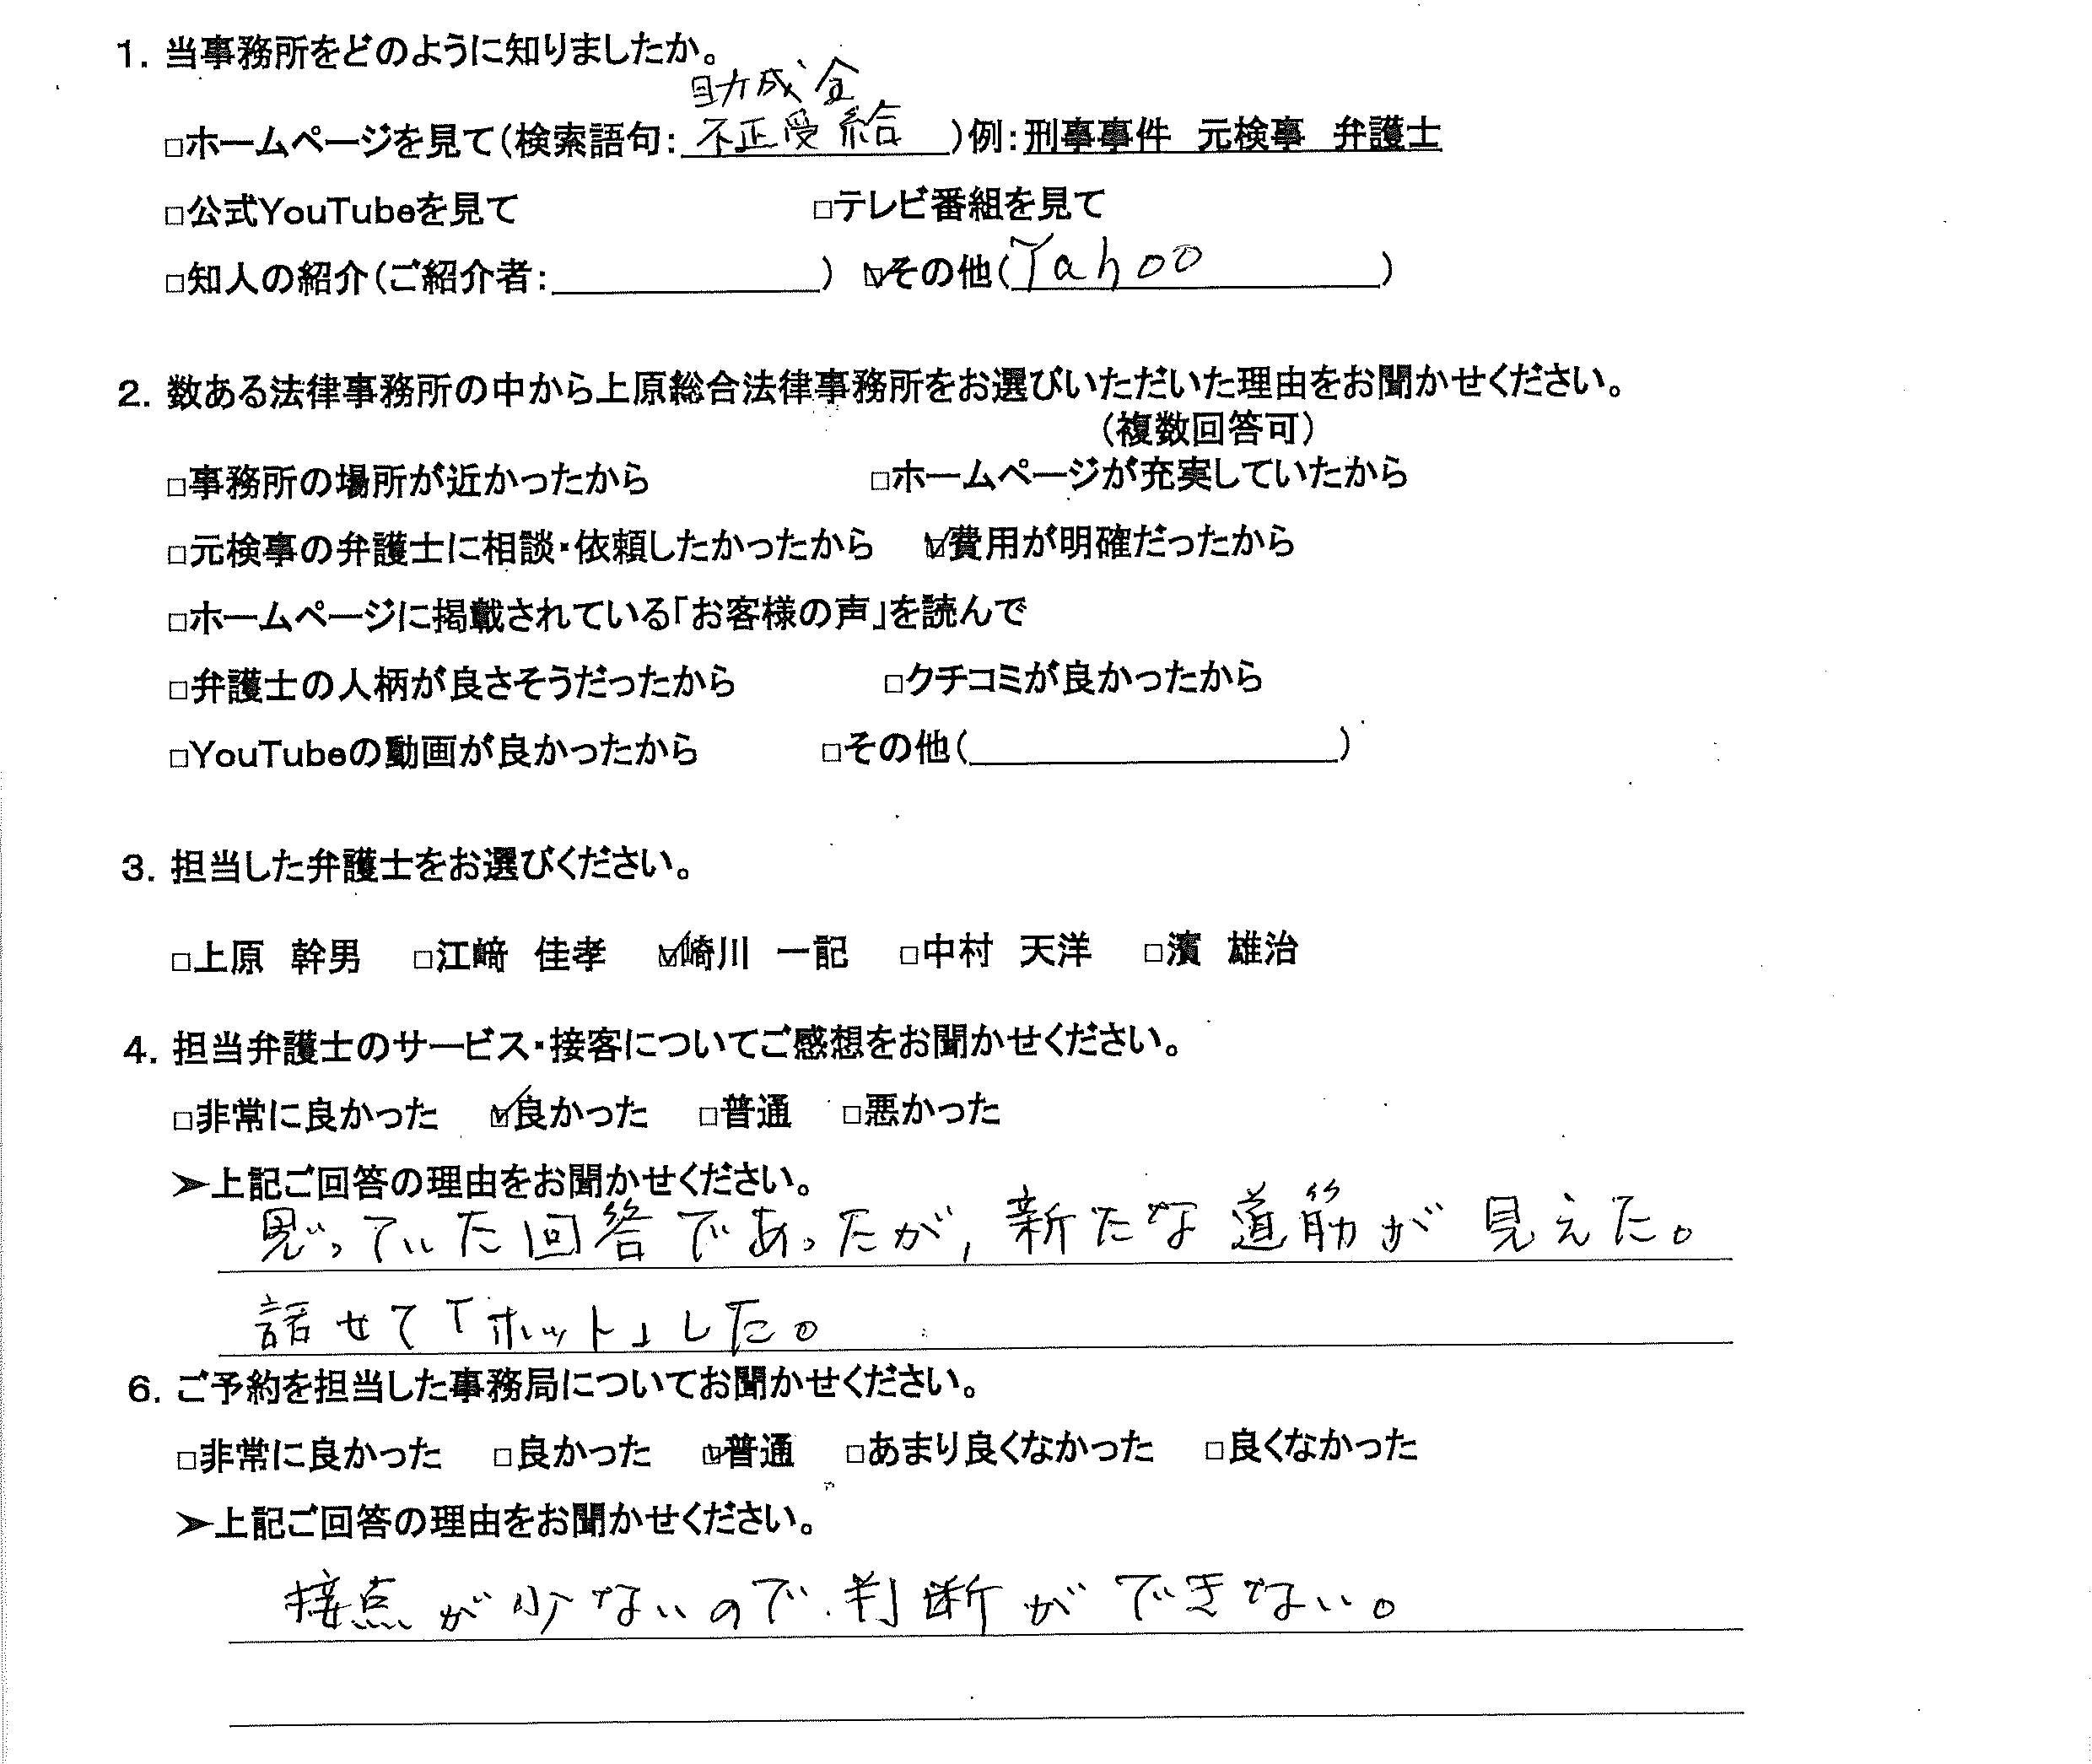 1. 当事務所をどのように知りましたか。
助成金
□ホームページを見て(検索語句: 不正受給 )例:刑事事件 元検事 弁護士
□公式YouTubeを見て □テレビ番組を見て
□知人の紹介(ご紹介者: ) ☑その他(Yahoo )
2. 数ある法律事務所の中から上原総合法律事務所をお選びいただいた理由をお聞かせください。
(複数回答可)
□事務所の場所が近かったから □ホームページが充実していたから
□元検事の弁護士に相談・依頼したかったから ☑費用が明確だったから
□ホームページに掲載されている「お客様の声」を読んで
□弁護士の人柄が良さそうだったから □クチコミが良かったから
□YouTubeの動画が良かったから □その他( )
3. 担当した弁護士をお選びください。
□上原 幹男 □江﨑 佳孝 ☑崎川 一記 □中村 天洋 □濱 雄治
4. 担当弁護士のサービス・接客についてご感想をお聞かせください。
□非常に良かった ☑良かった □普通 □悪かった
➢上記ご回答の理由をお聞かせください。
思っていた回答であったが,新たな道筋が見えた。
話せて「ホット」した。
6. ご予約を担当した事務局についてお聞かせください。
□非常に良かった □良かった ☑普通 □あまり良くなかった □良くなかった
➢上記ご回答の理由をお聞かせください。
接点が少ないので判断ができない。